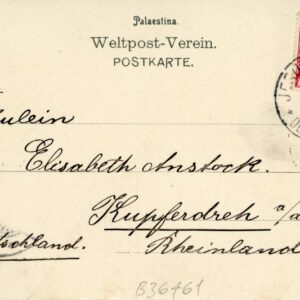 Palaestina.
Weltpost-Verein.
POSTKARTE.
ulein
Elisabeth Anstock.
Kupferdreh a/d
schland.
Rheinland
B36461